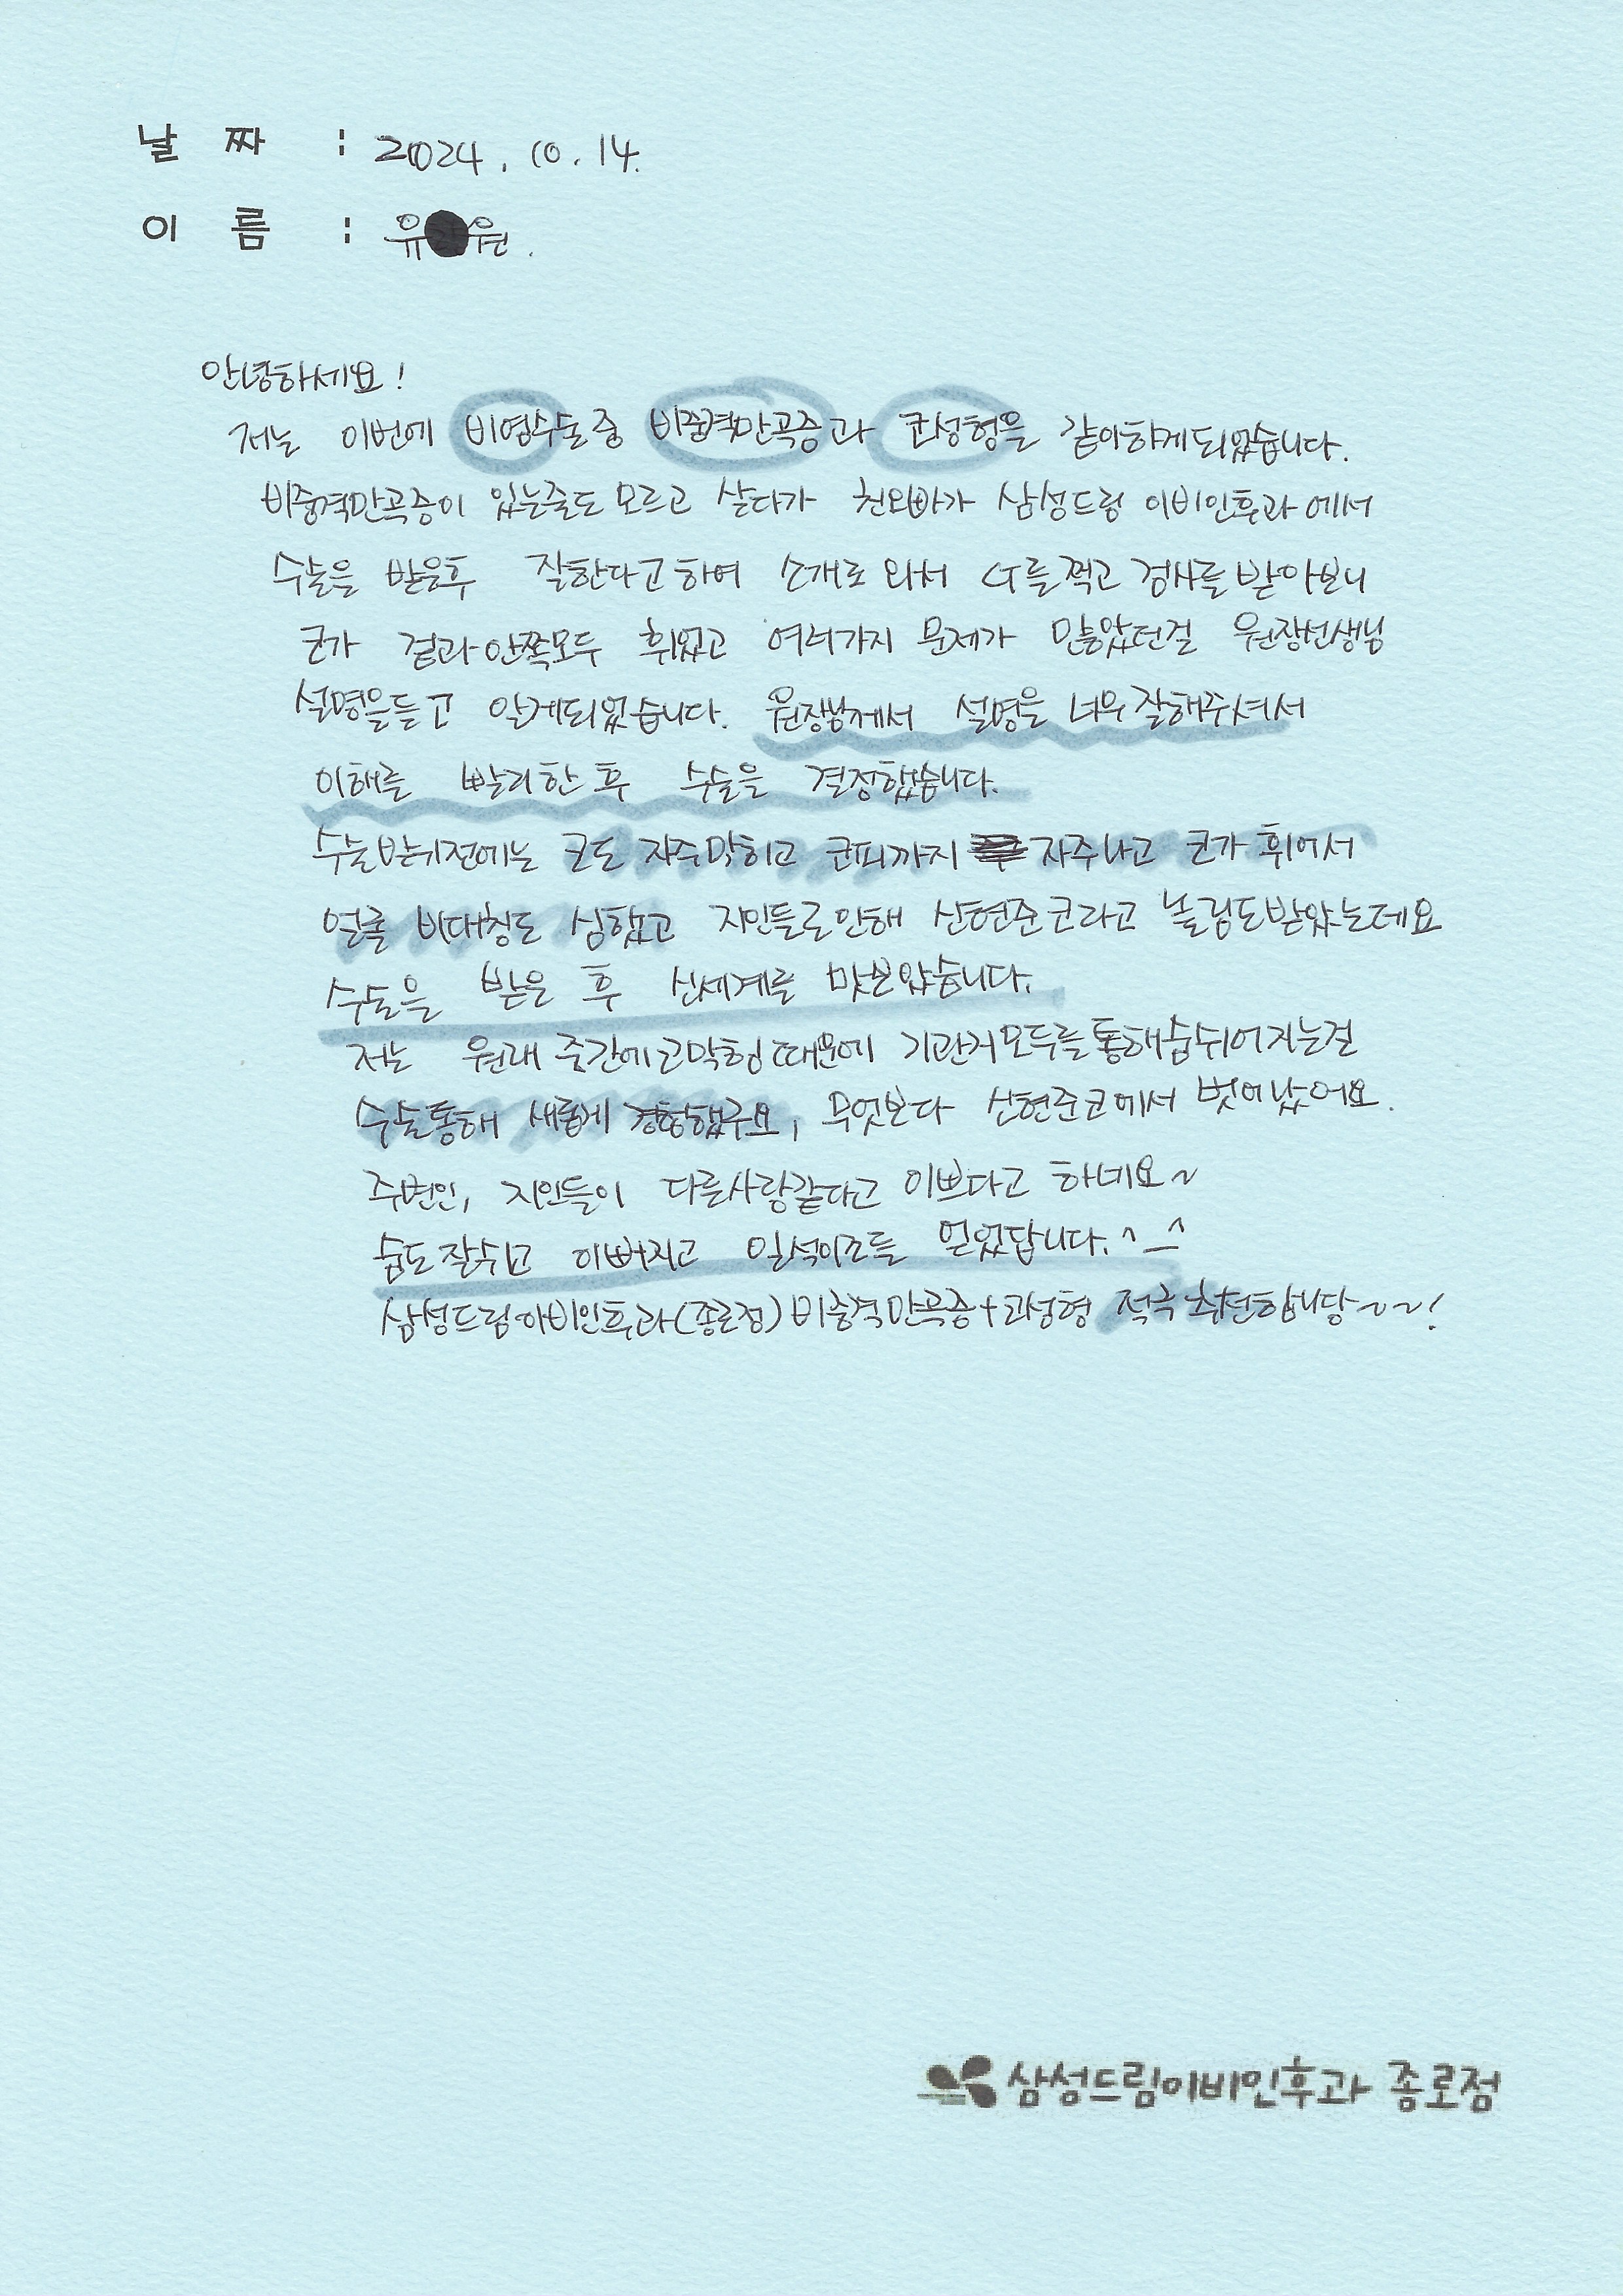 날 짜 : 2024. 10. 14.
이 름 : 유 원.
안녕하세요!
저는 이번에 비염수술중 비중격만곡증과 코성형을 같이하게되었습니다.
비중격만곡증이 있는줄도 모르고 살다가 친오빠가 삼성드림 이비인후과에서
수술을 받은후 잘한다고하여 소개로 와서 CT를 찍고 검사를 받아보니
코가 겉과 안쪽모두 휘었고 여러가지 문제가 많았던걸 원장선생님
설명을듣고 알게되었습니다. 원장님께서 설명을 너무 잘해주셔서
이해를 빨리한 후 수술을 결정했습니다.
수술받기전에는 코도 자주막히고 코피까지 자주나고 코가 휘어서
얼굴 비대칭도 심했고 지인들로인해 신현준코라고 놀림도받았는데요
수술을 받은 후 신세계를 맛보았습니다.
저는 원래 중간에 코막힘 때문에 기관지 모두를 통해숨쉬어지는걸
수술통해 새롭게 경험했구요, 무엇보다 신현준코에서 벗어났어요.
주변인, 지인들이 다른사람같다고 이쁘다고 하네요~
숨도잘쉬고 이뻐지고 일석이조를 얻었답니다.^_^
삼성드림이비인후과(종로점) 비중격만곡증+코성형 적극 추천합니당~~~!
삼성드림이비인후과 종로점